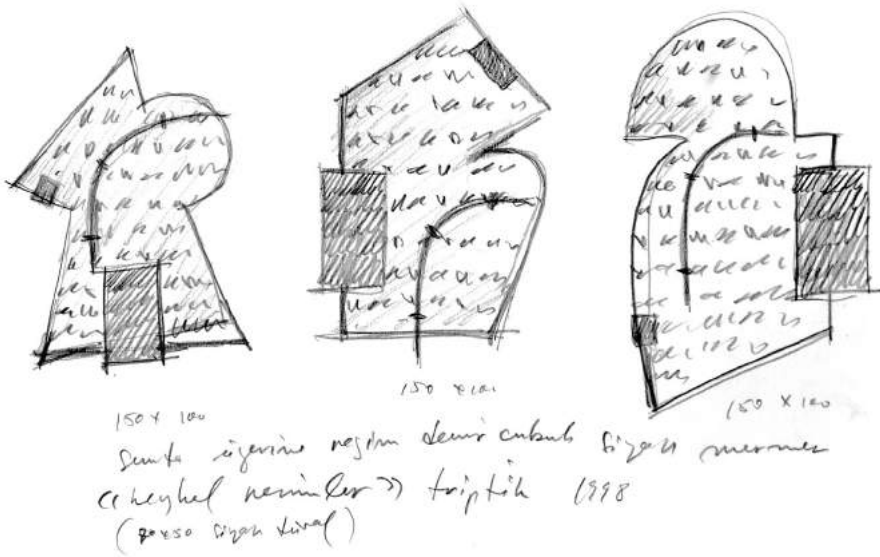 150 x 100
150 x 100
150 x 100
sunta üzerine resim demir çubuk siyah mermer
"heykel resimler" triptik 1998
(70x50 siyah tuval)